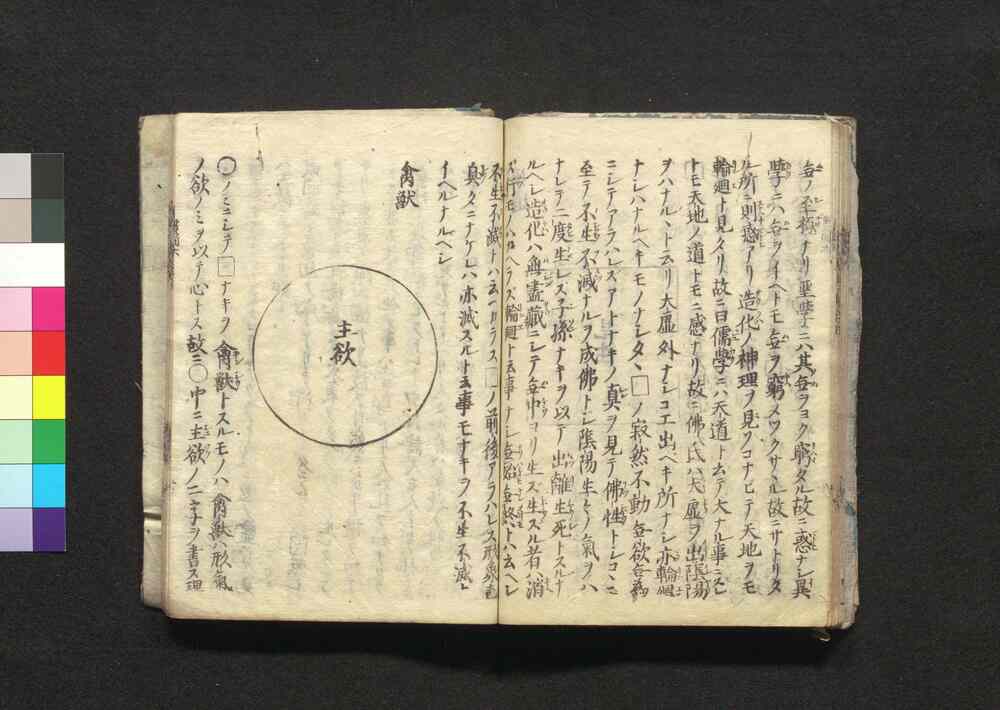 毎ノ至極ナリ聖学ニハ其毎ヲヨク窮タル故ニ惑ナシ異
学ニハ毎ヲイヘトモ毎ヲ窮メツクサヽル故ニサトリタ
ル所ニ則惑アリ造化ノ神理ヲ見ソコナヒテ天地ヲモ
輪廻ト見タリ故ニ曰儒学ニハ天道ト云テ大ナル事ニシ
トモ天地ノ道トモニ惑ナリ故ニ佛氏ハ大虚ヲ出陰陽
ヲハナルヽト云リ大虚外ナシコエ出ヘキ所ナシ亦輪廻
ナレハナルヘキモノナシタヽ□ノ寂然不動毎欲毎為
ニシテアラハレスアトナキノ真ヲ見テ佛性トシコヽニ
至テ不生不滅ナルヲ成佛トシ陰陽生々ノ氣ヲハ
ナレテ二度生レス子孫ナキヲ以テ出離生死トスルナ
ルヘシ造化ハ無尽蔵ニシテ毎中ヨリ生ズ生スル者ハ消
ズ行モノハカヘラズ輪廻ト云事ナシ毎始毎終トハ云ヘシ
不生不滅トハ云ヘカラス□ノ前後アラハレス形象
臭タニナケレハ亦滅スルト云事モナキヲ不生不滅ト
イヘルナルヘシ
禽獣
主欲
○ノミニシテ□ナキヲ禽獣トスルモノハ禽獣ハ形氣
ノ欲ノミヲ以テ心トス故ニ○中ニ主欲ノ二字ヲ書ス理